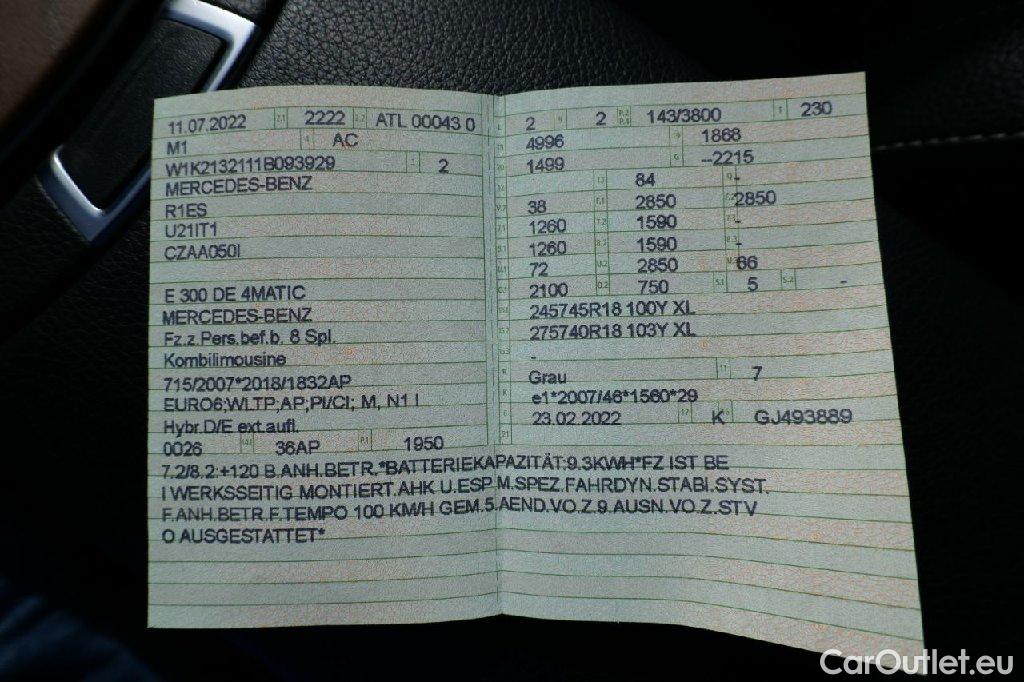 11.07.2022 2.1 2222 2.2 ATL 00043 0
M1 AC
W1K2132111B093929 2
MERCEDES-BENZ
R1ES
U21IT1
CZAA050I
E 300 DE 4MATIC
MERCEDES-BENZ
Fz.z.Pers.bef.b. 8 Spl.
Kombilimousine
715/2007*2018/1832AP
EURO6;WLTP;AP;PI/CI; M, N1 I
Hybr.D/E ext.aufl.
0026 36AP P.1 1950
L 2 9 2 P.2 P.4 143/3800 T 230
18 4996 19 1868
20 1499 G --2215
12 84 -
V.7 38 F.1 2850 2850
7.1 1260 7.2 1590 7.3 -
8.1 1260 8.2 1590 -
U.1 72 U.2 2850 U.3 66
O.1 2100 O.2 750 S.1 5 S.2 -
15.1 245745R18 100Y XL
15.2 275740R18 103Y XL
15.3 -
R Grau 11 7
K e1*2007/46*1560*29
6 23.02.2022 17 K 16 GJ493889
21
7.2/8.2:+120 B.ANH.BETR.*BATTERIEKAPAZITÄT:9.3KWH*FZ IST BE
I WERKSSEITIG MONTIERT.AHK U.ESP M.SPEZ.FAHRDYN.STABI.SYST.
F.ANH.BETR.F.TEMPO 100 KM/H GEM.5.AEND.VO.Z.9.AUSN.VO.Z.STV
O AUSGESTATTET*
CarOutlet.eu